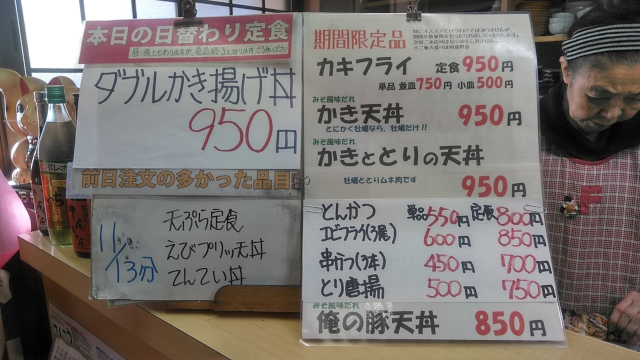 本日の日替わり定食
ダブルかき揚げ丼
950円
前日注文の多かった品目
11/13分
天ぷら定食
えびプリッ天丼
てんてい丼
期間限定品
カキフライ 定食950円
単品 並皿750円 小皿500円
みそ風味だれ
かき天丼 950円
とにかく牡蠣なら、牡蠣だけ!!
みそ風味だれ
かきととりの天丼
牡蠣ととりムネ肉です
950円
とんかつ 単品550円 定食800円
エビフライ(3尾) 600円 850円
串カツ(3本) 450円 700円
とり唐揚 500円 750円
みそ風味だれ
俺の豚天丼 850円